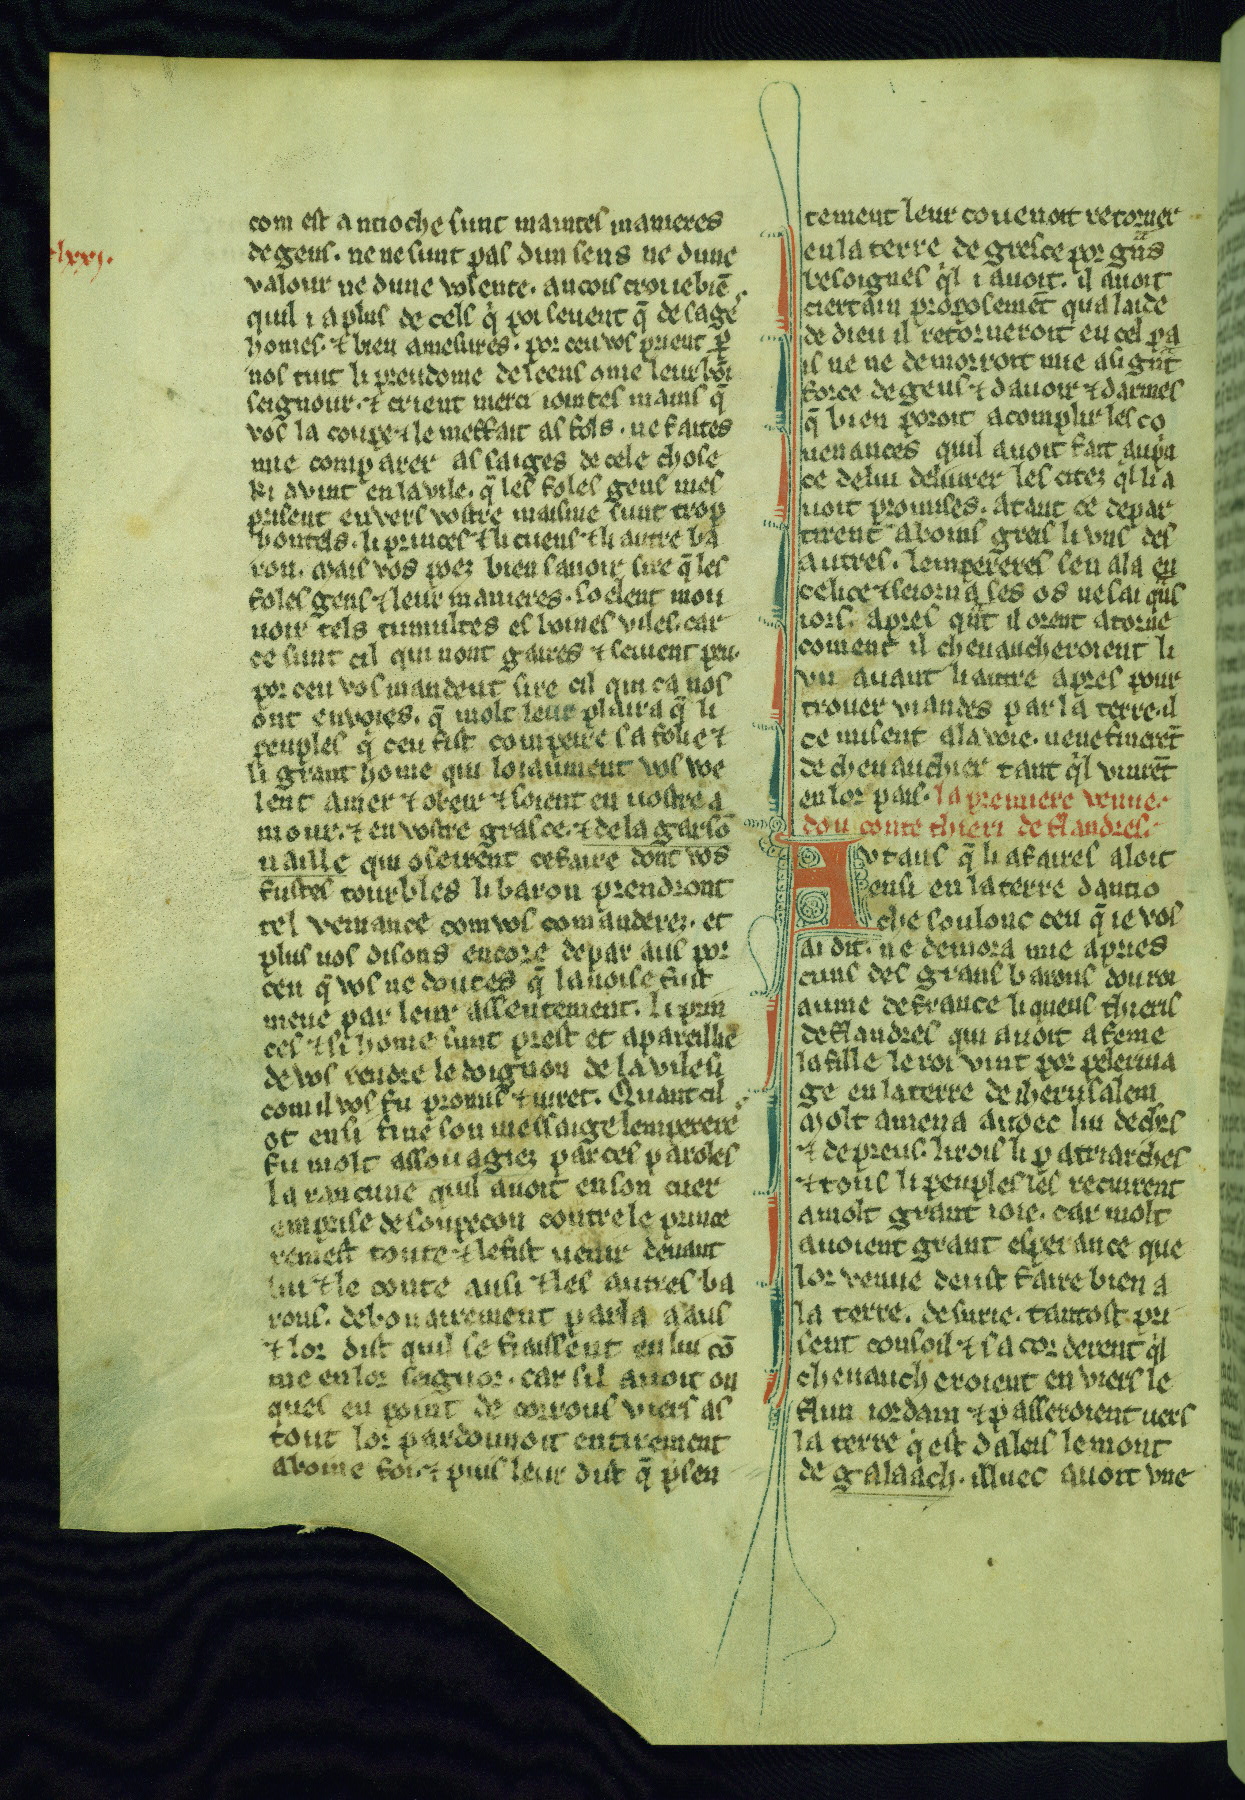 lxxj.
com est antioche sunt maintes manieres
de gens. ne ne sunt pas dun sens ne dune
valour ne dune volente. ancois croi ie biē
quil i a plus de cels q̇ poi seuent q̄ de sage
homes. ⁊ bien amesures. por ceu vos prient ꝑ
nos tuit li preudome de leens ome leur boī
seignour. ⁊ crient merci iointes mains q̄
vos la coupe ⁊ le meffait as fols. ne faites
mie comparer as saiges de cele chose
ki avint en la vile. q̄ les foles gens mes
prisent envers vostre maisnie sunt trop
honteus. li princes ⁊ li cuens ⁊ li autre ba
ron. mais vos poez bien sauoir sire q̄ les
foles gens ⁊ leur manieres. soelent mou
uoir tels tumultes es boines viles. car
ce sunt cil qui nont gaires ⁊ seiuent peu.
por ceu vos mandent sire cil qui ca nos
ont envoies. q̄ molt leur plaira q̄ li
peuples q̇ ceu fist compeire sa folie ⁊
li grant home qui loiaument vos voe
lent amer ⁊ obeir ⁊ soient en uostre a
mour. ⁊ en vostre grasce. ⁊ de la garsō
naille qui oseirent ce faire dont vos
fustes tourbles li baron prendront
tel veniance com vos comanderez. et
plus uos disons encore de par aus por
ceu q̄ vos ne doutes q̄ la noise fust
meue par leur assentement. li prin
ces ⁊ si home sunt prest et apareillie
de vos rendre le doignon de la vile si
com il vos fu promis ⁊ iuret. Quant cil
ot ensi fine son messaige lemperere
fu molt assouagiez par ces paroles
la rancune quil auoit en son cuer
emprise de soupecon contre le prince
remest toute ⁊ le fist uenir deuant
lui ⁊ le conte ausi ⁊ les autres ba
rons. debonairement parla a aus
⁊ lor dist quil se fiaissent en lui cō
me en lor seignor. car sil auoit on
ques eu point de corrous viers as
tout lor pardounoit entirement
a boine foi. ⁊ puis leur dist q̄ p̄sen
tement leur couenoit retorner
en la terre de gresce por gn̄s
besoignes q̇l i auoit. il auoit
ciertain proposemēt qua laide
de dieu il retorneroit en cel pa
is ne ne demorroit mie a si gn̄t
force de gens ⁊ dauoir ⁊ darmes
q̄ bien poroit acomplir les co
uenances quil auoit fait au pn̄
ce de lui deliurer les citez q̇l li a
uoit promises. atant ce depar
tirent a boins greis li vns des
autres. lempereres sen ala en
celice ⁊ seiorna ses os ne sai qn̄s
iors. apres qn̄t il orent atorne
coment il cheuaucheroient li
vn auant li autre apres pour
trouer viandes par la terre. il
ce misent a la voie. ne ne finerēt
de cheuauchier tant q̇l vinrēt
en lor pais. la premiere venue.
dou conte thieri de flandres.
Avtans q̄ li afaires aloit
ensi en la terre dantio
che soulonc ceu q̄ ie vos
ai dit. ne demora mie apries
cuns des grans barons dou roi
aume de france li quens thieris
de flandres qui auoit a feme
la fille le roi vint por pelerina
ge en la terre de iherusalem
molt amena auoec lui de ch̄rs
⁊ de preus. li rois li patriarches
⁊ tous li peuples les recuirent
a molt grant ioie. car molt
auoient grant esperance que
lor venue deust faire bien a
la terre. de surie. tantost pri
sent consoil ⁊ sacorderent q̇l
cheuaucheroient en viers le
flun iordain ⁊ passeroient uers
la terre q̇ est daleis le mont
de galaach. illuec auoit vne